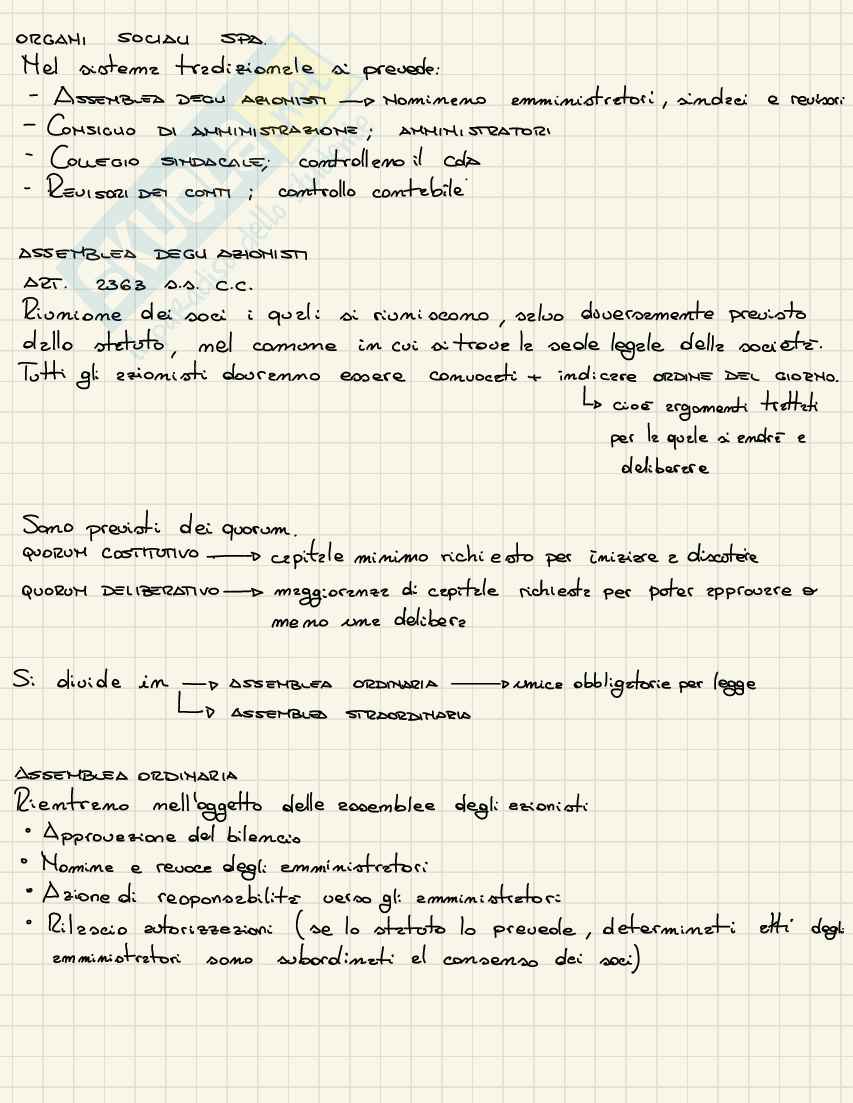 ORGANI SOCIALI SPA.
Nel sistema tradizionale si prevede:
- ASSEMBLEA DEGLI AZIONISTI → Nominano amministratori, sindaci e revisori
- CONSIGLIO DI AMMINISTRAZIONE; AMMINISTRATORI
- COLLEGIO SINDACALE; controllano il CdA
- REVISORI DEI CONTI; controllo contabile
ASSEMBLEA DEGLI AZIONISTI
ART. 2363 s.s. C.C.
Riunione dei soci i quali si riuniscono, salvo diversamente previsto
dallo statuto, nel comune in cui si trova la sede legale della società.
Tutti gli azionisti dovranno essere convocati + indicare ORDINE DEL GIORNO.
↳ cioè argomenti trattati
per la quale si andrà a
deliberare
Sono previsti dei quorum.
QUORUM COSTITUTIVO → capitale minimo richiesto per iniziare a discutere
QUORUM DELIBERATIVO → maggioranza di capitale richiesta per poter approvare o
meno una delibera
Si divide in → ASSEMBLEA ORDINARIA → unica obbligatoria per legge
↳ ASSEMBLEA STRAORDINARIA
ASSEMBLEA ORDINARIA
Rientrano nell'oggetto delle assemblee degli azionisti
• Approvazione del bilancio
• Nomina e revoca degli amministratori
• Azione di responsabilità verso gli amministratori
• Rilascio autorizzazioni (se lo statuto lo prevede, determinati atti degli
amministratori sono subordinati al consenso dei soci)
SKUOLA.net
il paradiso dello studente